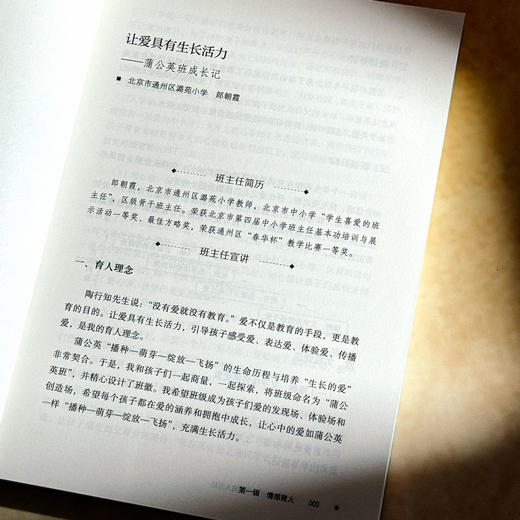 让爱具有生长活力
——蒲公英班成长记
■ 北京市通州区潞苑小学 郎朝霞
班主任简历
郎朝霞，北京市通州区潞苑小学教师，北京市中小学“学生喜爱的班
主任”，区级骨干班主任。荣获北京市第四届中小学班主任基本功培训与展
示活动一等奖、最佳方略奖，荣获通州区“春华杯”教学比赛一等奖。
班主任宣讲
一、育人理念
陶行知先生说：“没有爱就没有教育。”爱不仅是教育的手段，更是教
育的目的。让爱具有生长活力，引导孩子感受爱、表达爱、体验爱、传播
爱，是我的育人理念。
蒲公英“播种—萌芽—绽放—飞扬”的生命历程与培养“生长的爱”
非常契合。于是，我和孩子们一起商量，一起探索，将班级命名为“蒲公
英班”，并精心设计了班徽。我希望班级成为孩子们爱的发现场、体验场和
创造场，希望每个孩子都在爱的涵养和拥抱中成长，让心中的爱如蒲公英
一样“播种—萌芽—绽放—飞扬”，充满生长活力。
第一辑 情感育人 003